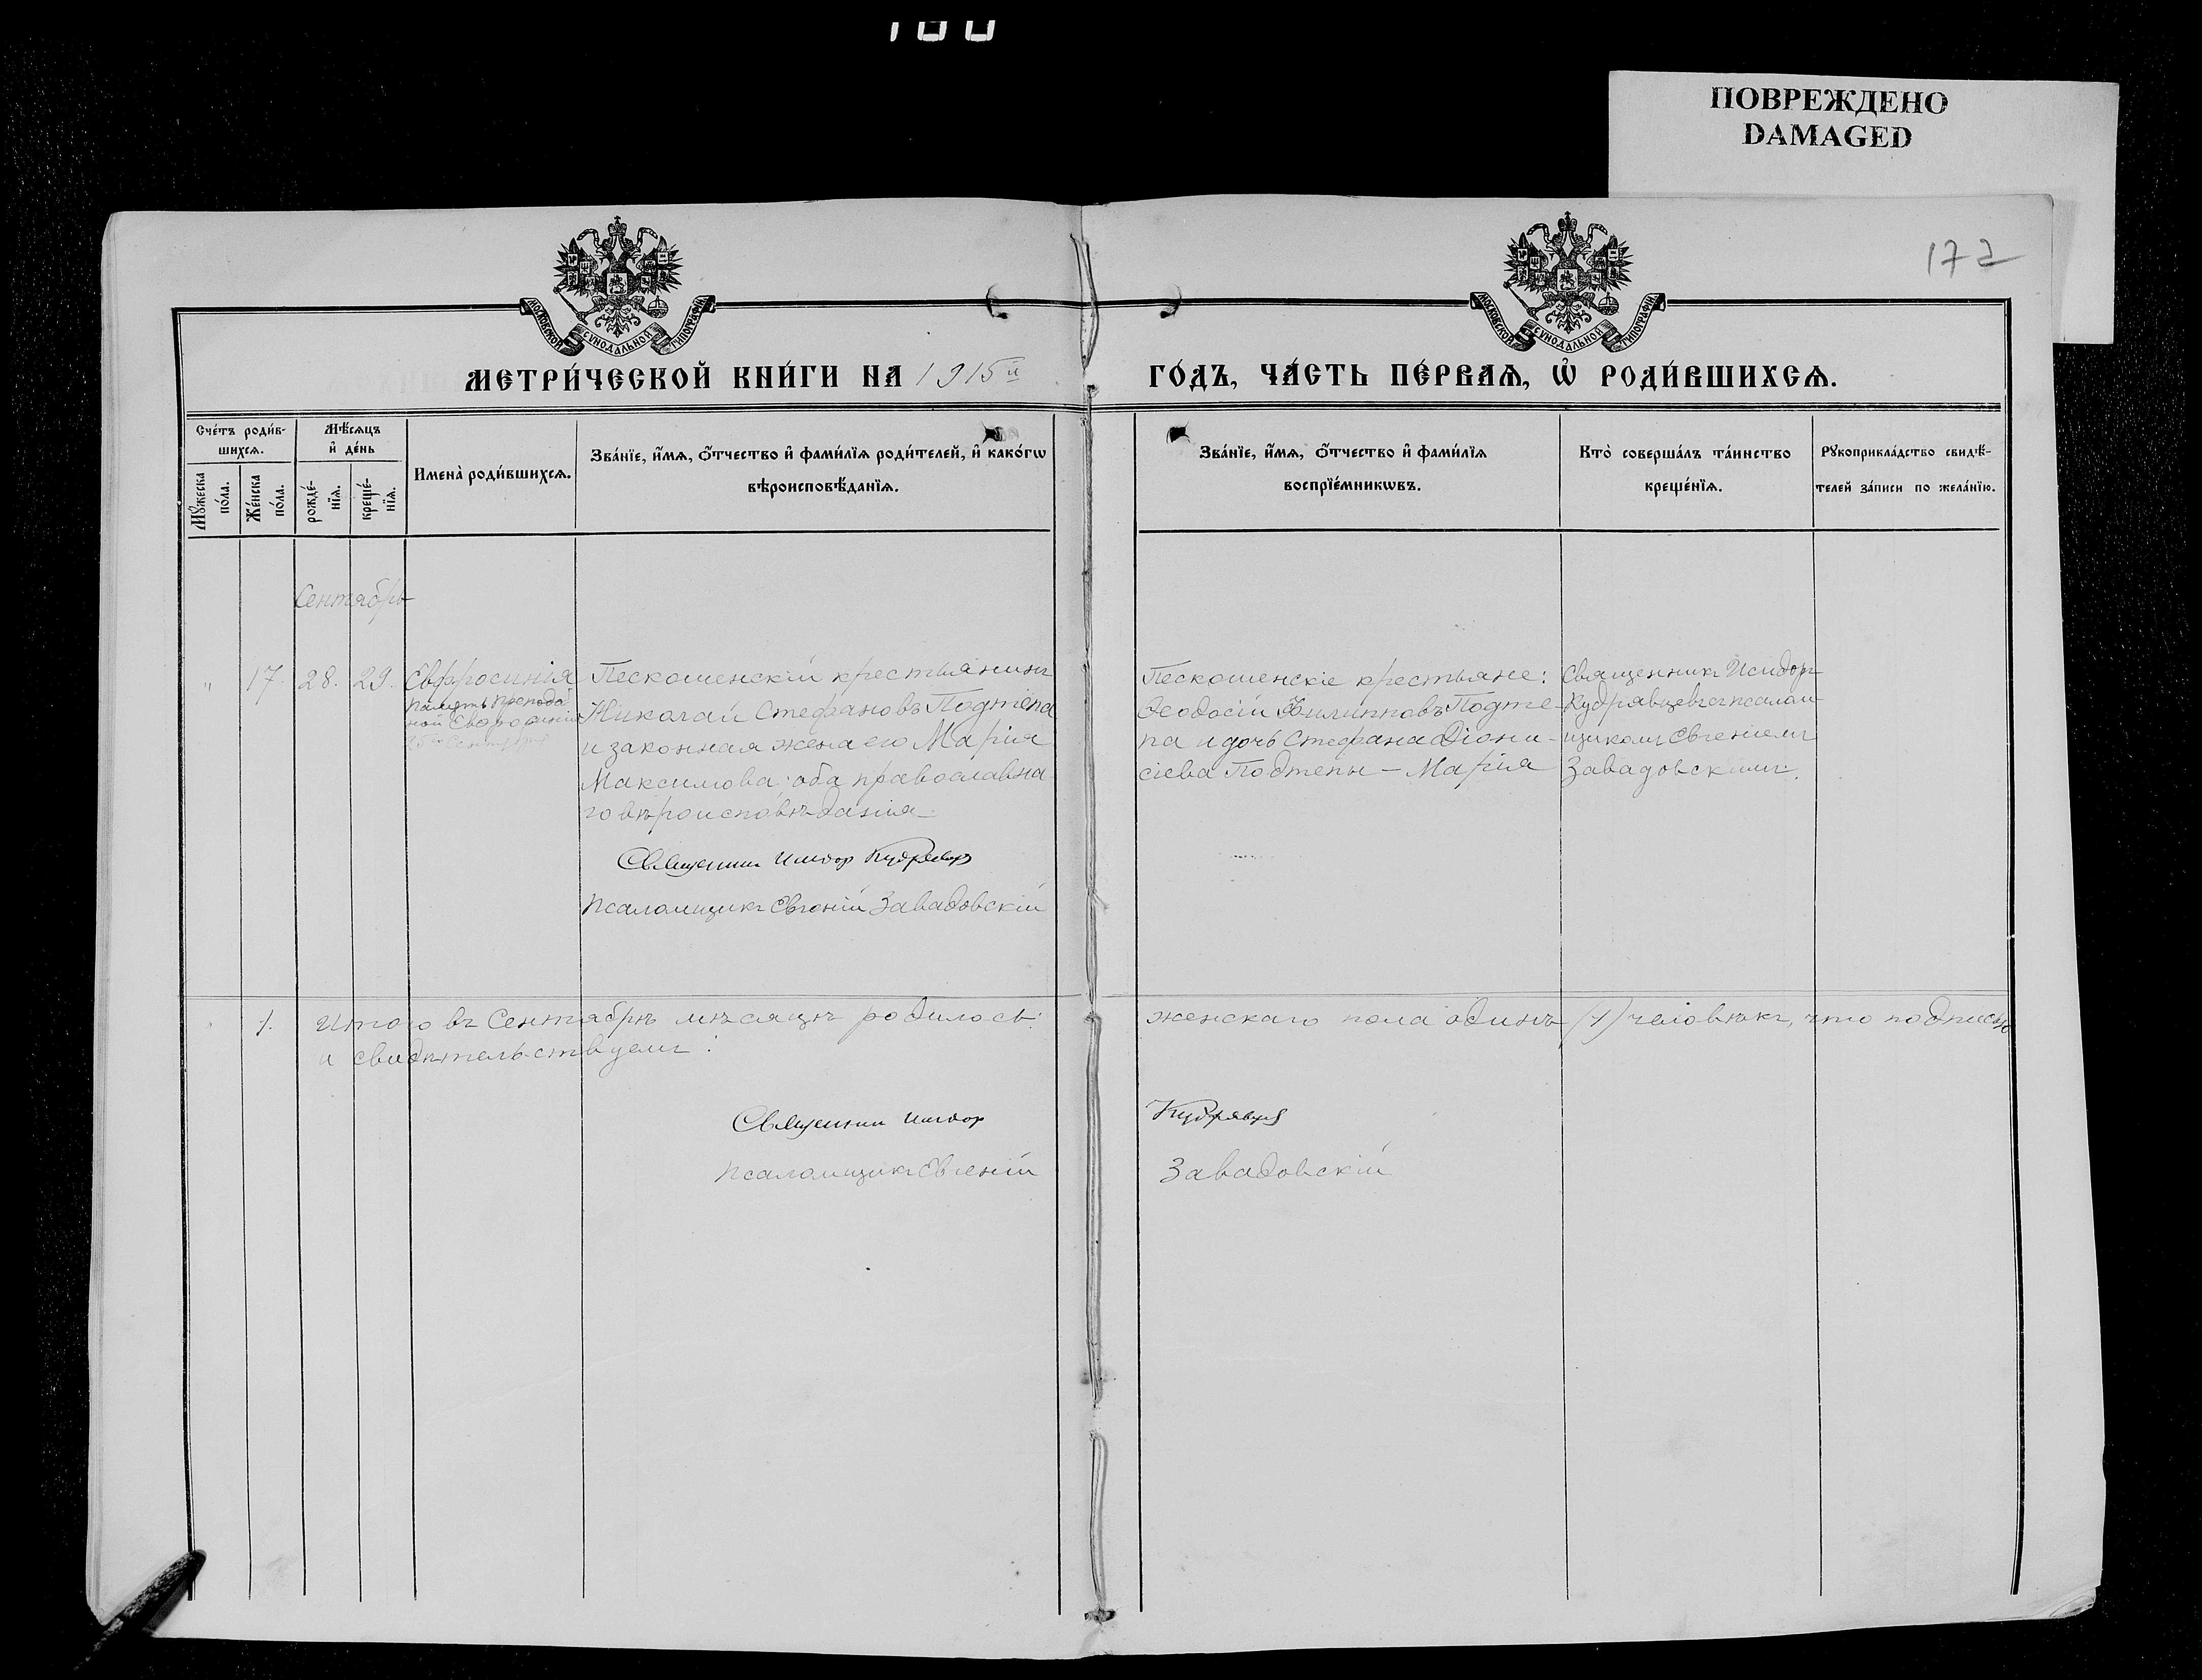 ПОВРЕЖДЕНО
DAMAGED
172
МОСКОВСКОЙ СѴНОДАЛЬНОЙ ТИПОГРАФІИ
МОСКОВСКОЙ СѴНОДАЛЬНОЙ ТИПОГРАФІИ
МЕТРИ́ЧЕСКОЙ КНИ́ГИ НА 1915й
ГО́ДЪ, ЧА́СТЬ ПЕ́РВАѦ, Ѡ҆ РОДИ́ВШИХСѦ.
Сче́тъ роди́в-
шихсѧ.
Мꙋ́жеска
по́ла.
Же́нска
по́ла.
Мѣ́сѧцъ
и҆ де́нь
рожде́-
нїѧ.
креще́-
нїѧ.
Имена̀ роди́вшихсѧ.
Зва́нїе, и҆́мѧ, ѻ҆́тчество и҆ фами́лїѧ роди́телей, и҆ како́гѡ
вѣроисповѣ́данїѧ.
Зва́нїе, и҆́мѧ, ѻ҆́тчество и҆ фами́лїѧ
воспрїе́мникѡвъ.
Кто̀ соверша́лъ та́инство
креще́нїѧ.
Рꙋкоприкла́дство свидѣ́-
телей за́писи по жела́нїю.
Сентябрь
" 17. 28. 29. Евфросинія
Память преподоб
ной Евфросиніи
25го Сентября
Пескошенскій крестьянинъ
Николай Стефановъ Подтепа
и законная жена его Марія
Максимова; оба православна-
го вѣроисповѣданія
Священник Исидор Кудрявцев
Псаломщикъ Евгеній Завадовскій
Пескошенскіе крестьяне:
Ѳеодосій Филипповъ Подте-
па и дочь Стефана Діони-
сіева Подтепы – Марія
Священникъ Исидоръ
Кудрявцевъ съ псалом-
щикомъ Евгеніемъ
Завадовскимъ.
" 1. Итого въ Сентябрѣ мѣсяцѣ родилось: женскаго пола одинъ (1) человѣкъ, что подписью
и свидѣтельствуемъ:
Священник Исидор Кудрявцев
Псаломщикъ Евгеній Завадовскій